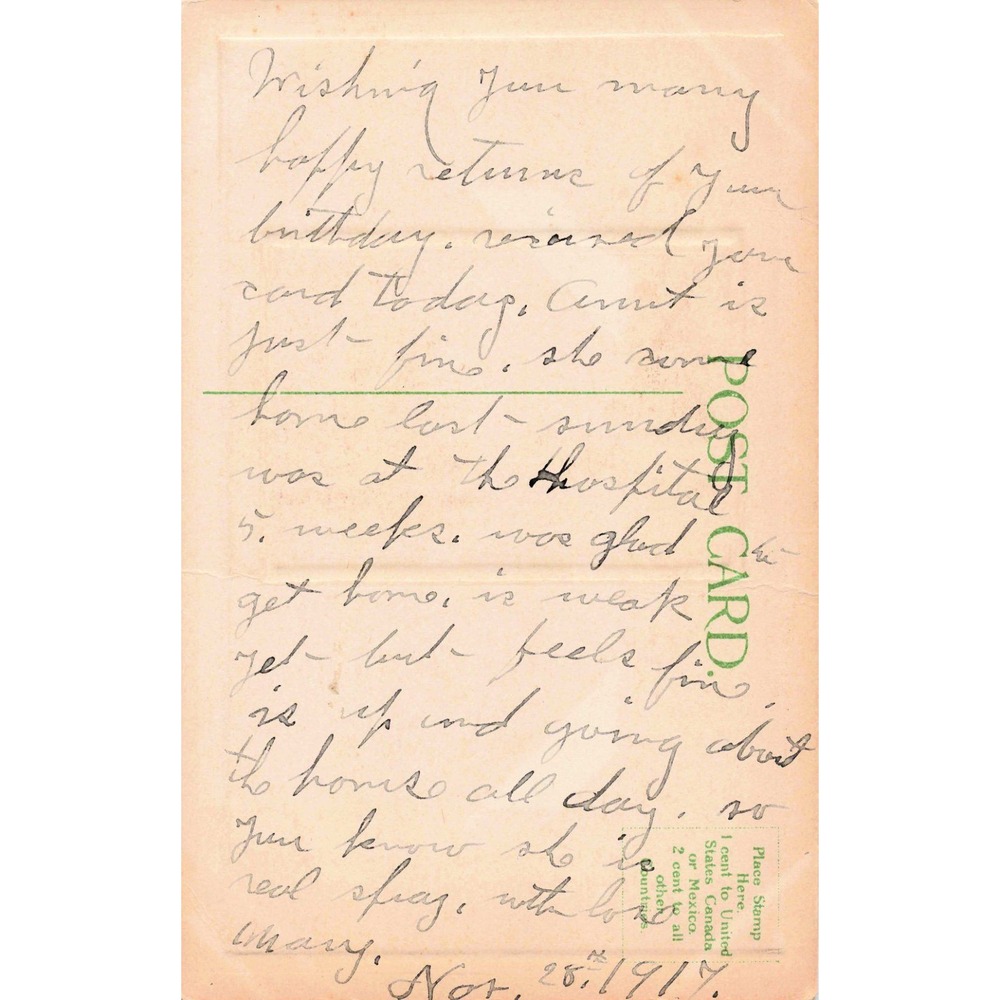 Wishing you many
happy returns of your
birthday. received your
card today. Aunt is
just fine. she come
home last sunday
was at the hospital
5. weeks. was glad to
get home. is weak
yet but feels fine.
is up and going about
the house all day. so
you know she is
real spray. with love
Mary.
Nov. 28th. 1917.
POST CARD.
Place Stamp
Here.
1 cent to United
States Canada
or Mexico.
2 cent to all
other
countries.